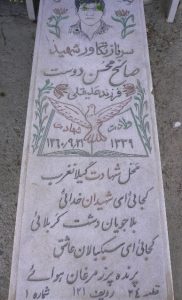 سرباز تکاور شهید
صالح محسن دوست
فرزند علیقلی
ولادت شهادت
۱۳۳۹ ۱۳۶۰/۹/۲۱
محل شهادت گیلانغرب
کجائی ای شهیدان خدائی
بلاجویان دشت کربلائی
کجائی ای سبکبالان عاشق
پرنده پرز مرغان هوائی
قطعه ۲۴ ردیف ۱۲۱ شماره ۱